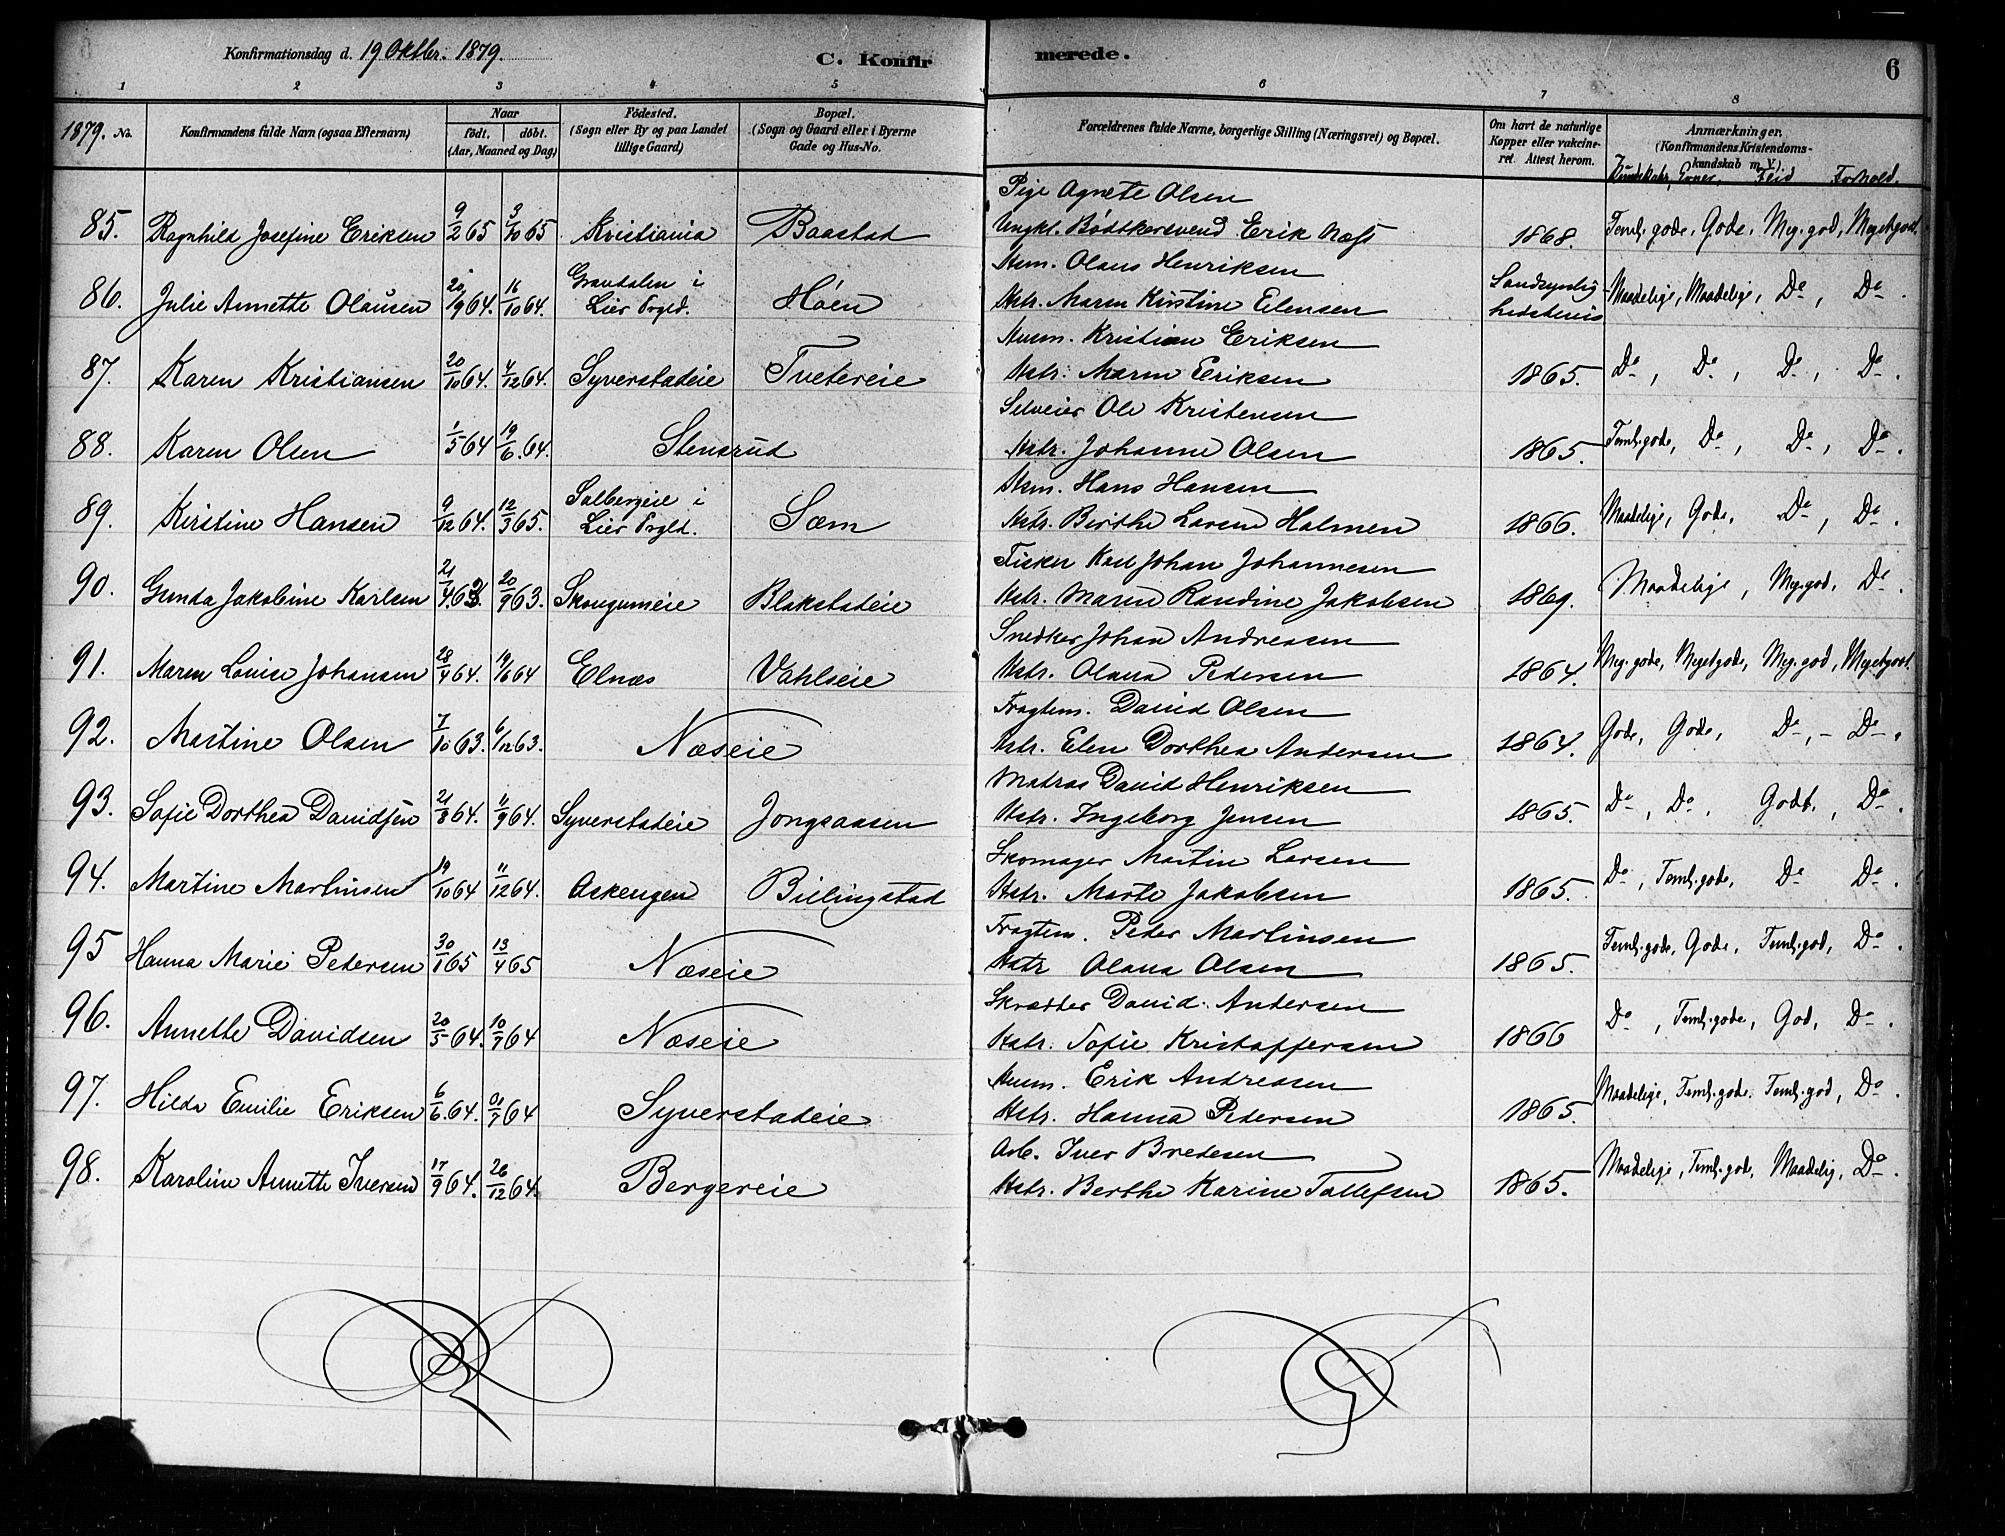 Konfirmationsdag d. 19 Oktbr. 1879.
C. Konfirmerede.
6
1 2 3 4 5 6 7 8
1879. No.
Konfirmandens fulde Navn (ogsaa Efternavn)
Naar
født. døbt.
(Aar, Maaned og Dag)
Fødested.
(Sogn eller By og paa Landet
tillige Gaard)
Bopæl.
(Sogn og Gaard eller i Byerne
Gade og Hus-No.
Forældrenes fulde Navne, borgerlige Stilling (Næringsvei) og Bopæl.
Om havt de naturlige
Kopper eller vakcine-
ret. Attest herom.
Anmærkninger.
(Konfirmandens Kristendoms-
kundskab m. V.)
Kundskabr, Evner, Flid Forhold.
Pige Agnete Olsen
85. Ragnhild Josefine Eriksen 9/2 65 3/10 65 Kristiania Baastad Ungkl. Bødtkersvend Erik Næss 1868. Teml. gode, Gode, Meg. god, Megetgodt.
Husm. Olaus Henriksen
86. Julie Annette Olausen 20/9 64. 16/10 64. Grandalen i Lier Prgld. Høen Hstr. Maren Kirstine Eilensen Sandsynlighedsbevis Maadelige, Maadelige, Do, Do.
Husm. Kristian Eriksen
87. Karen Kristiansen 20/10 64. 4/12 64. Syverstadeie Tvetereie Hstr. Maren Eriksen 1865. Do, Do, Do, Do.
Selveier Ole Kristensen
88. Karen Olsen 1/5 64 19/6. 64. Stensrud Hstr. Johanne Olsen 1865. Teml. gode, Do, Do, Do.
Husm. Hans Hansen
89. Kirstine Hansen 9/12 64. 12/3 65. Solbergeie i Lier Prgld. Sem Hstr. Birthe Larine Holmen 1866. Maadelige, Gode, Do, Do.
Fisker Karl Johan Johannesen
90. Gunda Jakobine Karlsen 21/4 63. 20/9 63. Skougumeie Blakstadeie Hstr. Maren Randine Jakobsen 1869. Maadelige, Meg. god, Do.
Snedker Johan Andreasen
91. Maren Louise Johansen 28/4 64. 19/6 64 Elnæs Vahlseie Hstr. Olava Pedersen 1864. Meg. gode, Megetgode, Meg. god, Megetgodt.
Fragtem. David Olsen
92. Martine Olsen 7/10 63. 6/12 63. Næseie Hstr. Elen Dorthea Andersen 1864. Gode, Gode, Do, - Do.
Matros David Henriksen
93. Sofie Dorthea Davidsen 21/8 64. 11/9 64. Syverstadeie Jongsaasen Hstr. Ingeborg Jensen 1865. Do, Do, Godt, Do.
Skomager Martin Larsen
94. Martine Martinsen 19/10 64 11/12 64. Askengen Billingstad Hstr. Marte Jakobsen 1865. Do, Teml. gode, Do Do.
Fragtem. Peder Martinsen
95 Hanna Marie Pedersen 30/1 65 13/4 65 Næseie Hstr Olava Olsen 1865. Teml. gode, Gode, Teml. god, Do.
Skrædder David Andersen
96. Annette Davidsen 20/5 64. 10/7 64 Næseie Hstr. Sofie Kristoffersen 1866 Do, Teml. gode, God, Do.
Husm. Erik Andreasen
97. Hilda Emilie Eriksen 6/6. 64. /7 64 Syverstadeie Hstr. Hanna Pedersen 1865. Maadelige, Teml. gode. Teml. god, Do.
Arb. Iver Bredesen
98. Karoline Annette Iversen 17/9 64. 26/12 64. Bergereie Hstr. Berthe Karine Tollefsen 1865. Maadelige, Teml. gode, Maadelig, Do.